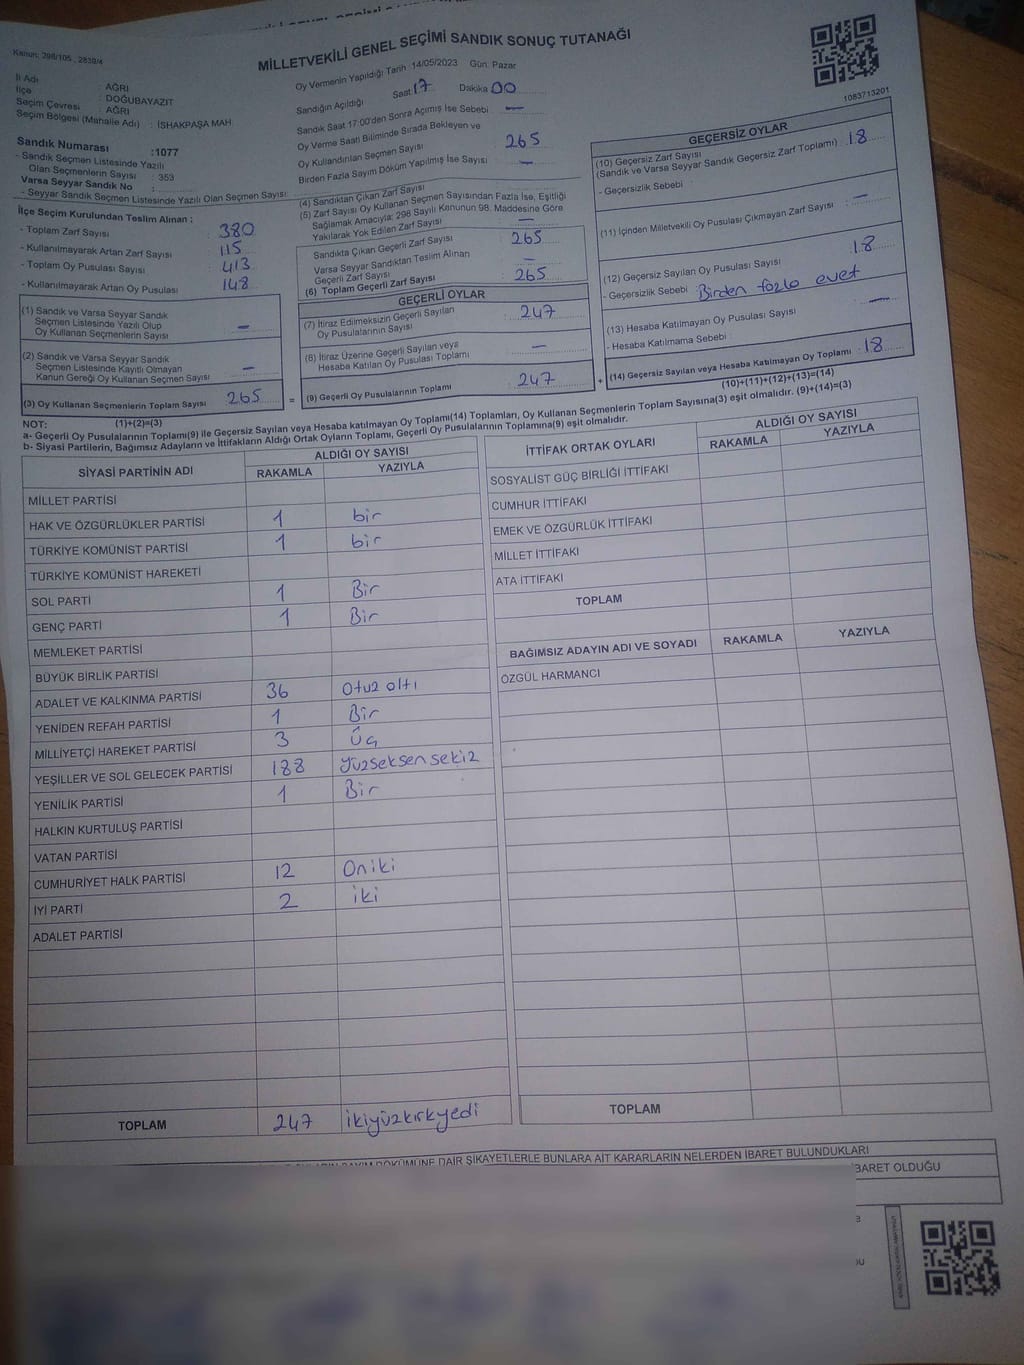 MİLLETVEKİLİ GENEL SEÇİMİ SANDIK SONUÇ TUTANAĞI
Kanun: 298/105 , 2839/4
İl Adı : AĞRI
İlçe : DOĞUBAYAZIT
Seçim Çevresi : AĞRI
Seçim Bölgesi (Mahalle Adı) : İSHAKPAŞA MAH.
Sandık Numarası :1077
- Sandık Seçmen Listesinde Yazılı
Olan Seçmenlerin Sayısı : 353
Varsa Seyyar Sandık No :
- Seyyar Sandık Seçmen Listesinde Yazılı Olan Seçmen Sayısı
Oy Vermenin Yapıldığı Tarih :14/05/2023 Gün: Pazar
Sandığın Açıldığı Saat 17 Dakika 00
Sandık Saat 17:00'den Sonra Açımış İse Sebebi —
Oy Verme Saati Bitiminde Sırada Bekleyen ve
Oy Kullandırılan Seçmen Sayısı 265
Birden Fazla Sayım Döküm Yapılmış İse Sayısı —
1083713201
İlçe Seçim Kurulundan Teslim Alınan :
- Toplam Zarf Sayısı : 380
- Kullanılmayarak Artan Zarf Sayısı : 115
- Toplam Oy Pusulası Sayısı : 413
- Kullanılmayarak Artan Oy Pusulası : 148
(1) Sandık ve Varsa Seyyar Sandık
Seçmen Listesinde Yazılı Olup
Oy Kullanan Seçmenlerin Sayısı —
(2) Sandık ve Varsa Seyyar Sandık
Seçmen Listesinde Kayıtlı Olmayan
Kanun Gereği Oy Kullanan Seçmen Sayısı —
(3) Oy Kullanan Seçmenlerin Toplam Sayısı : 265
(4) Sandıktan Çıkan Zarf Sayısı
(5) Zarf Sayısı Oy Kullanan Seçmen Sayısından Fazla İse, Eşitliği
Sağlamak Amacıyla; 298 Sayılı Kanunun 98. Maddesine Göre
Yakılarak Yok Edilen Zarf Sayısı —
Sandıkta Çıkan Geçerli Zarf Sayısı 265
Varsa Seyyar Sandıktan Teslim Alınan
Geçerli Zarf Sayısı —
(6) Toplam Geçerli Zarf Sayısı 265
GEÇERLİ OYLAR
(7) İtiraz Edilmeksizin Geçerli Sayılan
Oy Pusulalarının Sayısı : 247
(8) İtiraz Üzerine Geçerli Sayılan veya
Hesaba Katılan Oy Pusulası Toplamı : —
= (9) Geçerli Oy Pusulalarının Toplamı : 247 +
GEÇERSİZ OYLAR
(10) Geçersiz Zarf Sayısı
(Sandık ve Varsa Seyyar Sandık Geçersiz Zarf Toplamı) : 18
- Geçersizlik Sebebi :
(11) İçinden Milletvekili Oy Pusulası Çıkmayan Zarf Sayısı : —
(12) Geçersiz Sayılan Oy Pusulası Sayısı : 18
- Geçersizlik Sebebi : Birden fazla evet
(13) Hesaba Katılmayan Oy Pusulası Sayısı : —
- Hesaba Katılmama Sebebi :
(14) Geçersiz Sayılan veya Hesaba Katılmayan Oy Toplamı : 18
(10)+(11)+(12)+(13)=(14)
NOT: (1)+(2)=(3)
a- Geçerli Oy Pusulalarının Toplamı(9) ile Geçersiz Sayılan veya Hesaba katılmayan Oy Toplamı(14) Toplamları, Oy Kullanan Seçmenlerin Toplam Sayısına(3) eşit olmalıdır. (9)+(14)=(3)
b- Siyasi Partilerin, Bağımsız Adayların ve İttifakların Aldığı Ortak Oyların Toplamı, Geçerli Oy Pusulalarının Toplamına(9) eşit olmalıdır.
SİYASİ PARTİNİN ADI ALDIĞI OY SAYISI
RAKAMLA YAZIYLA
MİLLET PARTİSİ
HAK VE ÖZGÜRLÜKLER PARTİSİ 1 bir
TÜRKİYE KOMÜNİST PARTİSİ 1 bir
TÜRKİYE KOMÜNİST HAREKETİ
SOL PARTİ 1 Bir
GENÇ PARTİ 1 Bir
MEMLEKET PARTİSİ
BÜYÜK BİRLİK PARTİSİ
ADALET VE KALKINMA PARTİSİ 36 Otuz altı
YENİDEN REFAH PARTİSİ 1 Bir
MİLLİYETÇİ HAREKET PARTİSİ 3 Üç
YEŞİLLER VE SOL GELECEK PARTİSİ 188 Yüzseksensekiz
YENİLİK PARTİSİ 1 Bir
HALKIN KURTULUŞ PARTİSİ
VATAN PARTİSİ
CUMHURİYET HALK PARTİSİ 12 Oniki
İYİ PARTİ 2 iki
ADALET PARTİSİ
TOPLAM 247 ikiyüzkırkyedi
İTTİFAK ORTAK OYLARI ALDIĞI OY SAYISI
RAKAMLA YAZIYLA
SOSYALİST GÜÇ BİRLİĞİ İTTİFAKI
CUMHUR İTTİFAKI
EMEK VE ÖZGÜRLÜK İTTİFAKI
MİLLET İTTİFAKI
ATA İTTİFAKI
TOPLAM
BAĞIMSIZ ADAYIN ADI VE SOYADI RAKAMLA YAZIYLA
ÖZGÜL HARMANCI
TOPLAM
DÖKÜMÜNE DAİR ŞİKAYETLERLE BUNLARA AİT KARARLARIN NELERDEN İBARET BULUNDUKLARI
İBARET OLDUĞU